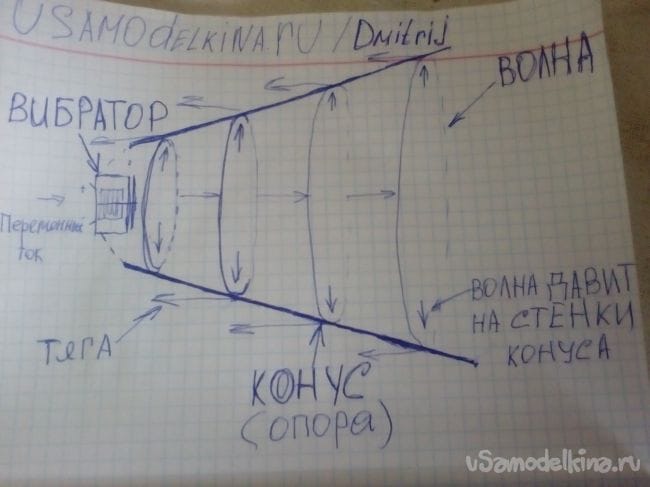 USAMOdELKINA.RU/Dmitrij
ВОЛНА
ВИБРАТОР
Переменный
ток
ВОЛНА ДАВИТ
НА СТЕНКИ
КОНУСА
ТЯГА
КОНУС
(ОПОРА)
uSamodelkina.ru